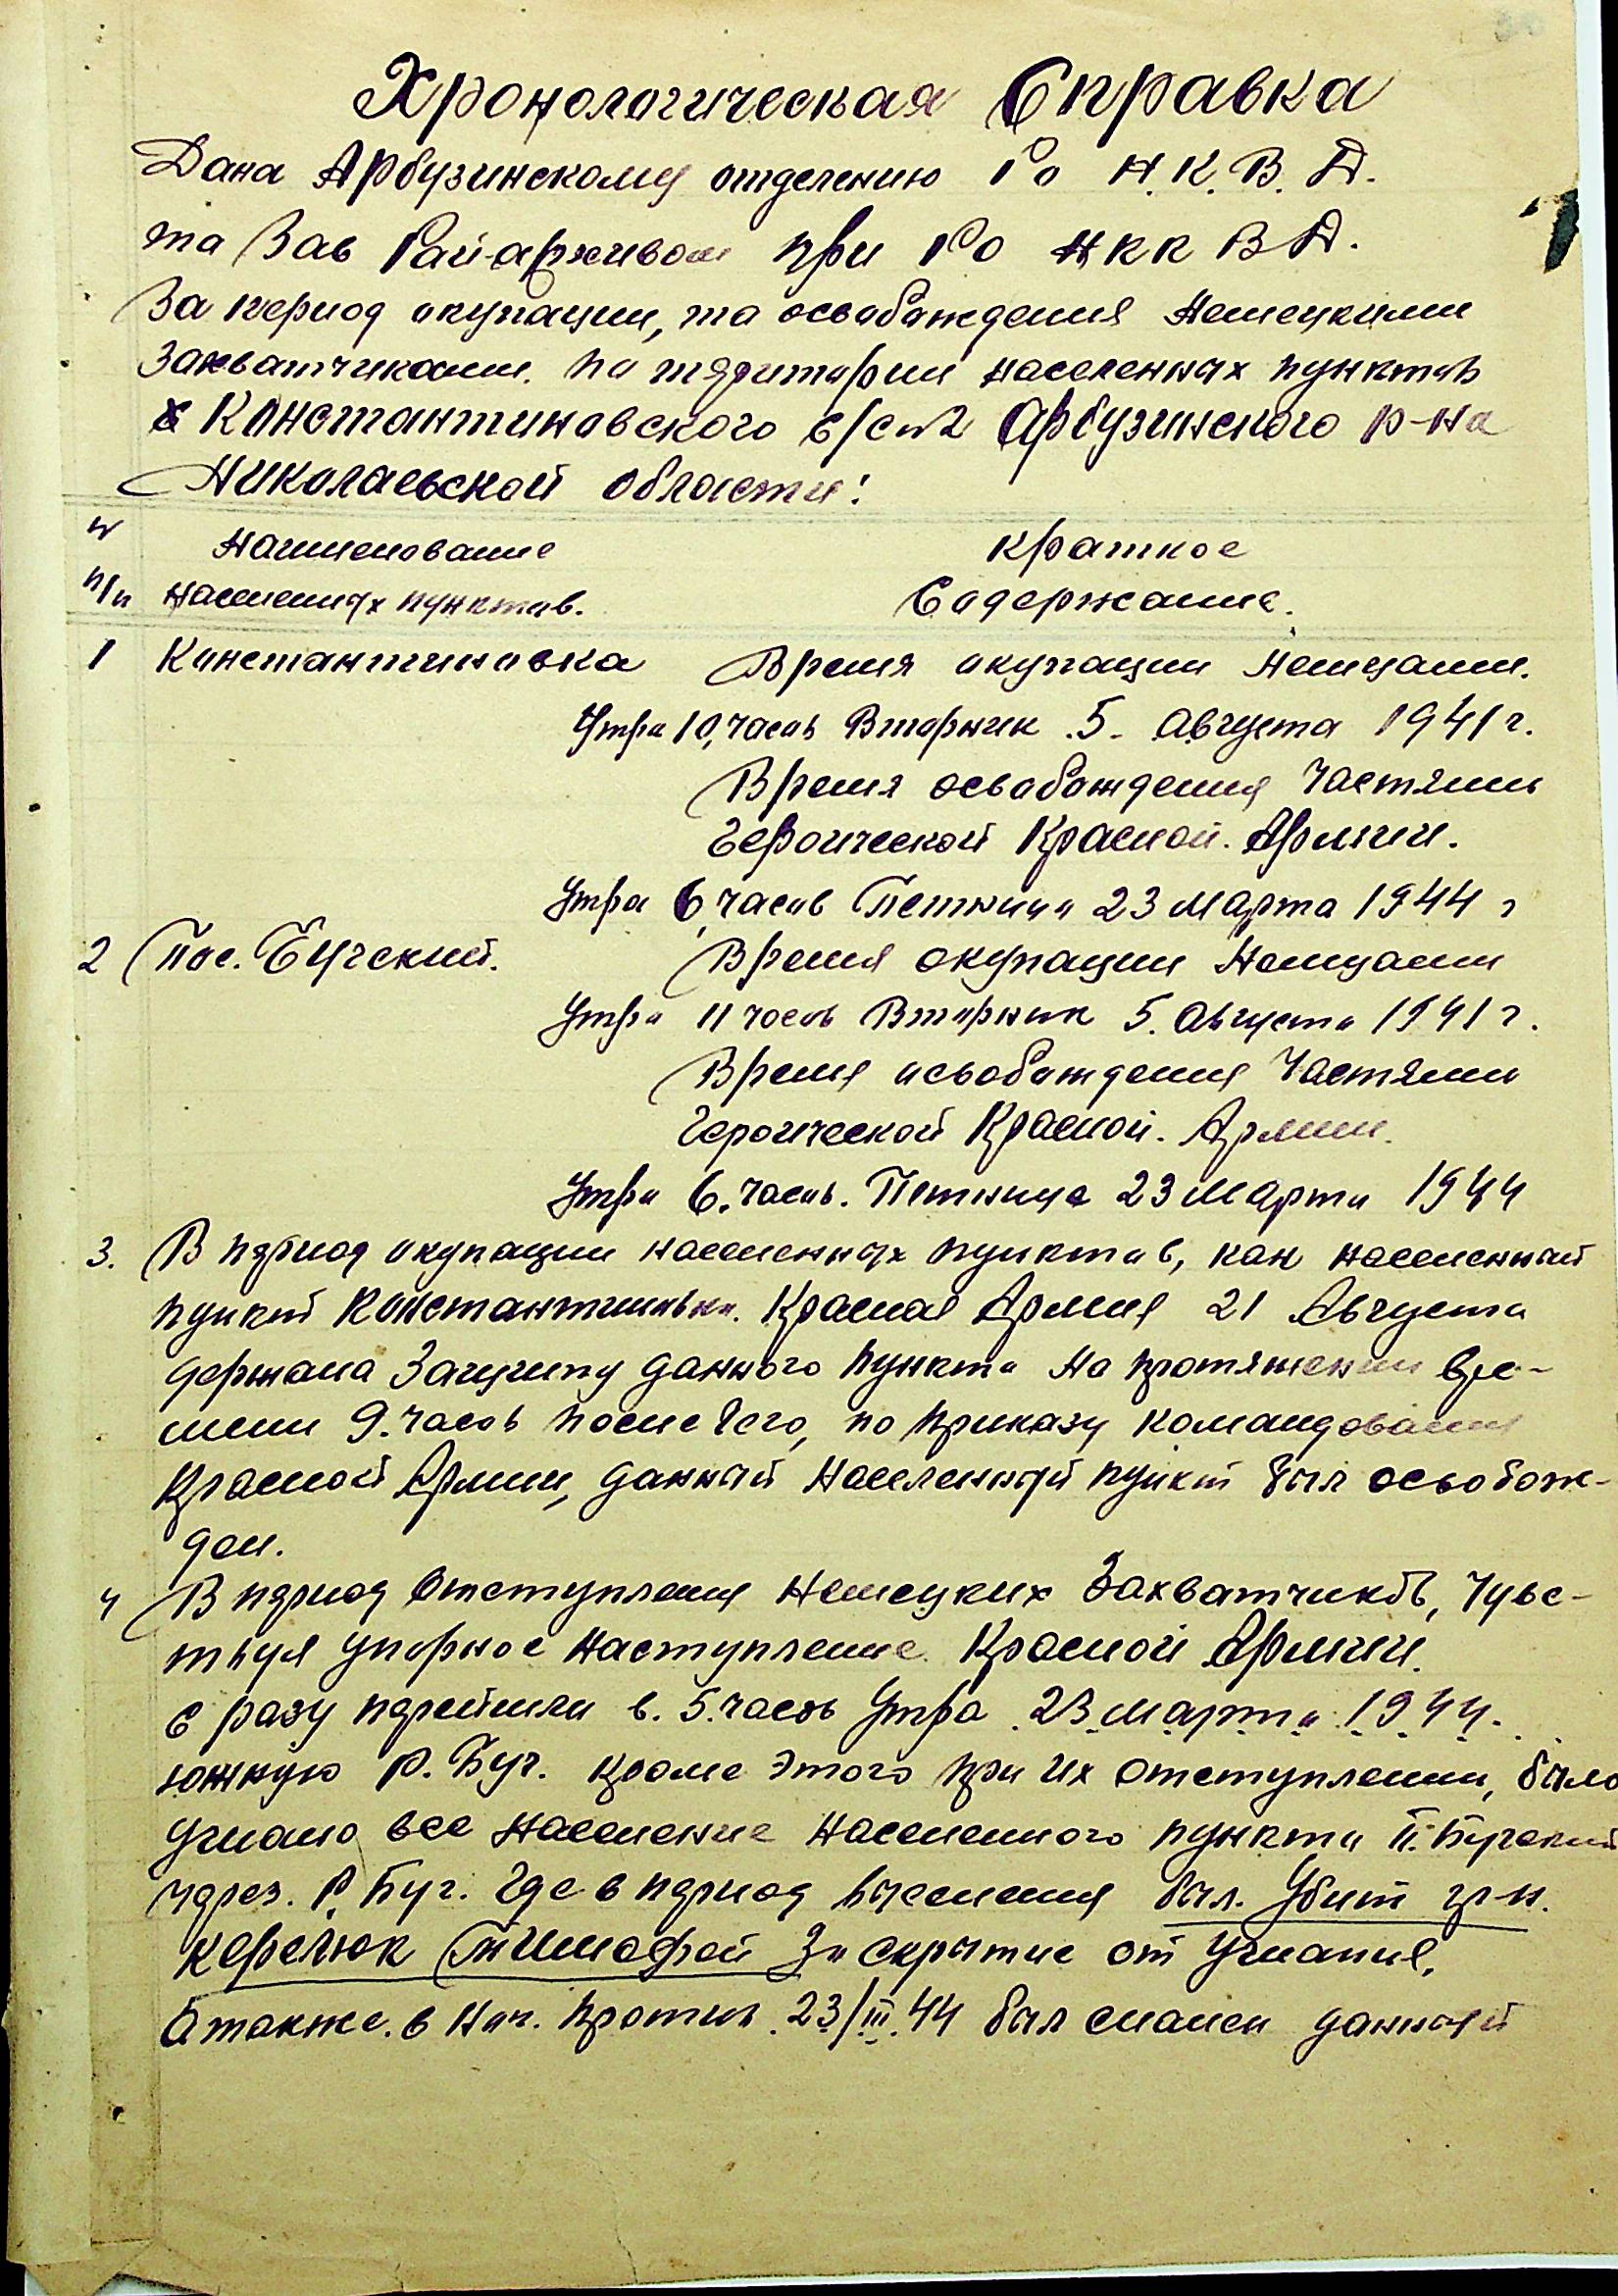 Хронологическая Справка
Дана Арбузинскому отделению Ро Н.К.В.Д.
та Зав Рай-архивом при Ро НКК ВД.
За период окупации, та освабаждения Немецкими
Захватчиками. по тяритории населенных пунктов
Константиновского с/сов Арбузинского р-на
Николаевской области:
N Наименование краткое
п/п населенных пунктов. Содержание.
1 Константиновка Время окупации Немцами.
Утра 10, часов Вторник .5. Августа 1941 г.
Время освабаждения Частями
Героической Красной. Армии.
Утра 6, часов Петница 23 Марта 1944 г
2 Пос. Бугский. Время окупации Немцами
Утра 11 часов Вторник 5. Августа 1941 г.
Время освобаждения Частями
Героической Красной. Армии.
Утра 6. часов. Петница 23 Марта 1944
3. В пяриод окупации населенных пунктов, как населенный
пункт Константиновка. Красная Армия 21 Августа
держала Защиту данного пункта на протяжении вре-
мени 9. часов после чего, по приказу командования
Красной Армии, данный Населенный пункт был освобож-
ден.
4 В пяриод Отступления Немецких Захватчиков, Чувс-
твуя упорное наступление Красной Армии.
с разу перейшли в. 5. часов Утра 23 марта 1944.
южную р. Буг. кроме этого при их отступлении, было
Угнано все Население Населенного пункта П. Бугский
через. р. Буг. Где в период выселения был. Убит гр-н.
Керелюк Тимофей За скрытие от Угнания,
А также. в Ноч. против. 23/III.44 был спален данный